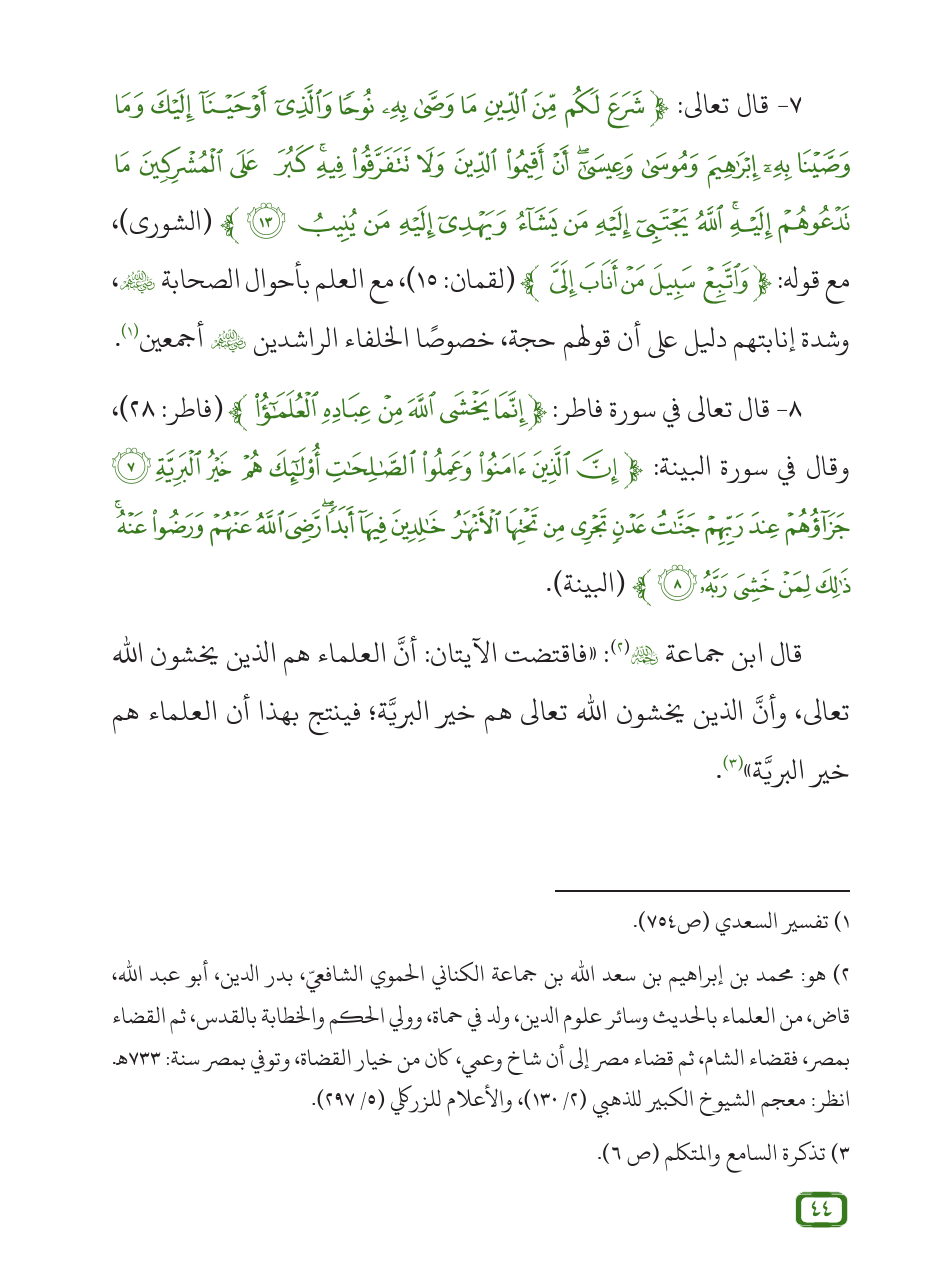 ٧- قال تعالى: ﴿ شَرَعَ لَكُم مِّنَ ٱلدِّينِ مَا وَصَّىٰ بِهِۦ نُوحًا وَٱلَّذِىٓ أَوْحَيْنَآ إِلَيْكَ وَمَا
وَصَّيْنَا بِهِۦٓ إِبْرَٰهِيمَ وَمُوسَىٰ وَعِيسَىٰٓ ۖ أَنْ أَقِيمُوا۟ ٱلدِّينَ وَلَا تَتَفَرَّقُوا۟ فِيهِ ۚ كَبُرَ عَلَى ٱلْمُشْرِكِينَ مَا
تَدْعُوهُمْ إِلَيْهِ ۚ ٱللَّهُ يَجْتَبِىٓ إِلَيْهِ مَن يَشَآءُ وَيَهْدِىٓ إِلَيْهِ مَن يُنِيبُ ١٣ ﴾ (الشورى)،
مع قوله: ﴿ وَٱتَّبِعْ سَبِيلَ مَنْ أَنَابَ إِلَىَّ ﴾ (لقمان: ١٥)، مع العلم بأحوال الصحابة ﵃،
وشدة إنابتهم دليل على أن قولهم حجة، خصوصًا الخلفاء الراشدين ﵃ أجمعين(١).
٨- قال تعالى في سورة فاطر: ﴿ إِنَّمَا يَخْشَى ٱللَّهَ مِنْ عِبَادِهِ ٱلْعُلَمَٰٓؤُا۟ ﴾ (فاطر: ٢٨)،
وقال في سورة البينة: ﴿ إِنَّ ٱلَّذِينَ ءَامَنُوا۟ وَعَمِلُوا۟ ٱلصَّٰلِحَٰتِ أُو۟لَٰٓئِكَ هُمْ خَيْرُ ٱلْبَرِيَّةِ ٧
جَزَآؤُهُمْ عِندَ رَبِّهِمْ جَنَّٰتُ عَدْنٍ تَجْرِى مِن تَحْتِهَا ٱلْأَنْهَٰرُ خَٰلِدِينَ فِيهَآ أَبَدًا ۖ رَّضِىَ ٱللَّهُ عَنْهُمْ وَرَضُوا۟ عَنْهُ ۚ
ذَٰلِكَ لِمَنْ خَشِىَ رَبَّهُۥ ٨ ﴾ (البينة).
قال ابن جماعة ﵀(٢): «فاقتضت الآيتان: أنَّ العلماء هم الذين يخشون الله
تعالى، وأنَّ الذين يخشون الله تعالى هم خير البريَّة؛ فينتج بهذا أن العلماء هم
خير البريَّة»(٣).
١) تفسير السعدي (ص٧٥٤).
٢) هو: محمد بن إبراهيم بن سعد الله بن جماعة الكناني الحموي الشافعيّ، بدر الدين، أبو عبد الله،
قاض، من العلماء بالحديث وسائر علوم الدين، ولد في حماة، وولي الحكم والخطابة بالقدس، ثم القضاء
بمصر، فقضاء الشام، ثم قضاء مصر إلى أن شاخ وعمي، كان من خيار القضاة، وتوفي بمصر سنة: ٧٣٣هـ.
انظر: معجم الشيوخ الكبير للذهبي (٢/ ١٣٠)، والأعلام للزركلي (٥/ ٢٩٧).
٣) تذكرة السامع والمتكلم (ص ٦).
٤٤